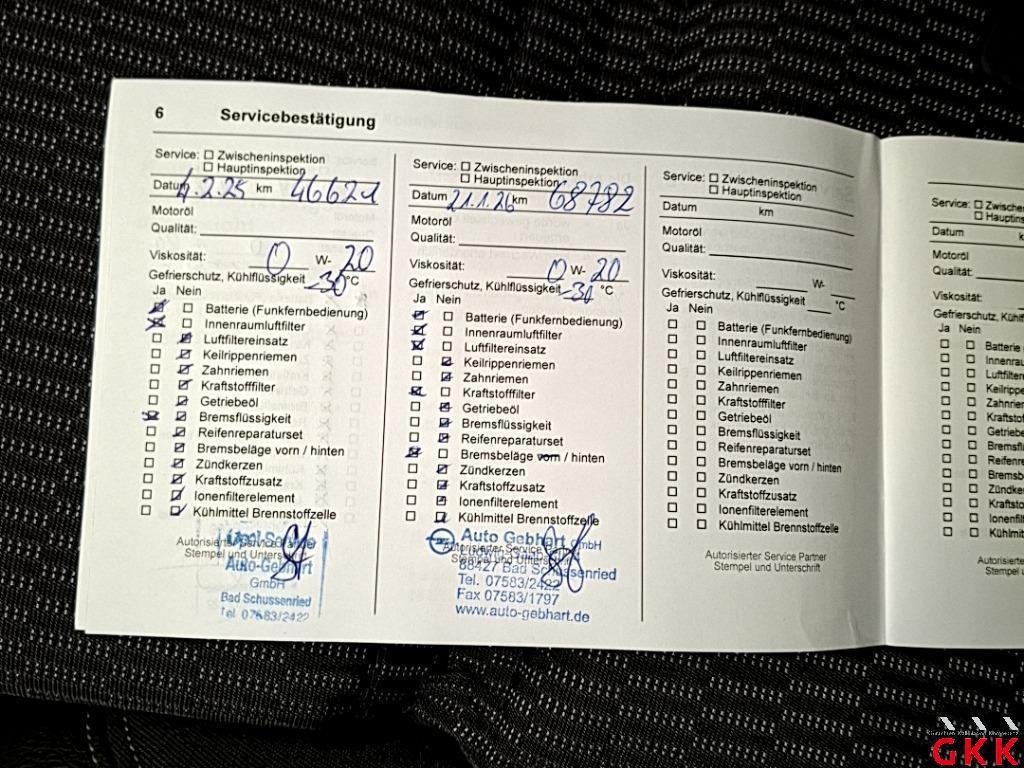 6 Servicebestätigung
Service: Zwischeninspektion
Hauptinspektion
Datum 4.2.25 km 46621
Motoröl
Qualität:
Viskosität: 0 W- 20
Gefrierschutz, Kühlflüssigkeit -30 °C
Ja Nein
Batterie (Funkfernbedienung)
Innenraumluftfilter
Luftfiltereinsatz
Keilrippenriemen
Zahnriemen
Kraftstofffilter
Getriebeöl
Bremsflüssigkeit
Reifenreparaturset
Bremsbeläge vorn / hinten
Zündkerzen
Kraftstoffzusatz
Ionenfilterelement
Kühlmittel Brennstoffzelle
Autorisierter Service
Stempel und Unterschrift
Opel-Service
Auto-Gebhart
GmbH
Bad Schussenried
Tel. 07583/2422
Service: Zwischeninspektion
Hauptinspektion
Datum 21.1.26 km 68782
Motoröl
Qualität:
Viskosität: 0 W- 20
Gefrierschutz, Kühlflüssigkeit -31 °C
Ja Nein
Batterie (Funkfernbedienung)
Innenraumluftfilter
Luftfiltereinsatz
Keilrippenriemen
Zahnriemen
Kraftstofffilter
Getriebeöl
Bremsflüssigkeit
Reifenreparaturset
Bremsbeläge vorn / hinten
Zündkerzen
Kraftstoffzusatz
Ionenfilterelement
Kühlmittel Brennstoffzelle
Auto Gebhart GmbH
Autorisierter Service
Stempel und Unterschrift
88427 Bad Schussenried
Tel. 07583/2422
Fax 07583/1797
www.auto-gebhart.de
Service: Zwischeninspektion
Hauptinspektion
Datum km
Motoröl
Qualität:
Viskosität: W-
Gefrierschutz, Kühlflüssigkeit °C
Ja Nein
Batterie (Funkfernbedienung)
Innenraumluftfilter
Luftfiltereinsatz
Keilrippenriemen
Zahnriemen
Kraftstofffilter
Getriebeöl
Bremsflüssigkeit
Reifenreparaturset
Bremsbeläge vorn / hinten
Zündkerzen
Kraftstoffzusatz
Ionenfilterelement
Kühlmittel Brennstoffzelle
Autorisierter Service Partner
Stempel und Unterschrift
Service: Zwischenins
Hauptinspe
Datum
Motoröl
Qualität:
Viskosität:
Gefrierschutz, Kühlflüs
Ja Nein
Batterie
Innenrau
Luftfilter
Keilrippe
Zahnrie
Kraftsto
Getriebe
Bremsfl
Reifenre
Bremsbe
Zündke
Kraftsto
Ionenfil
Kühlmit
Autorisi
Stempel u
GKK